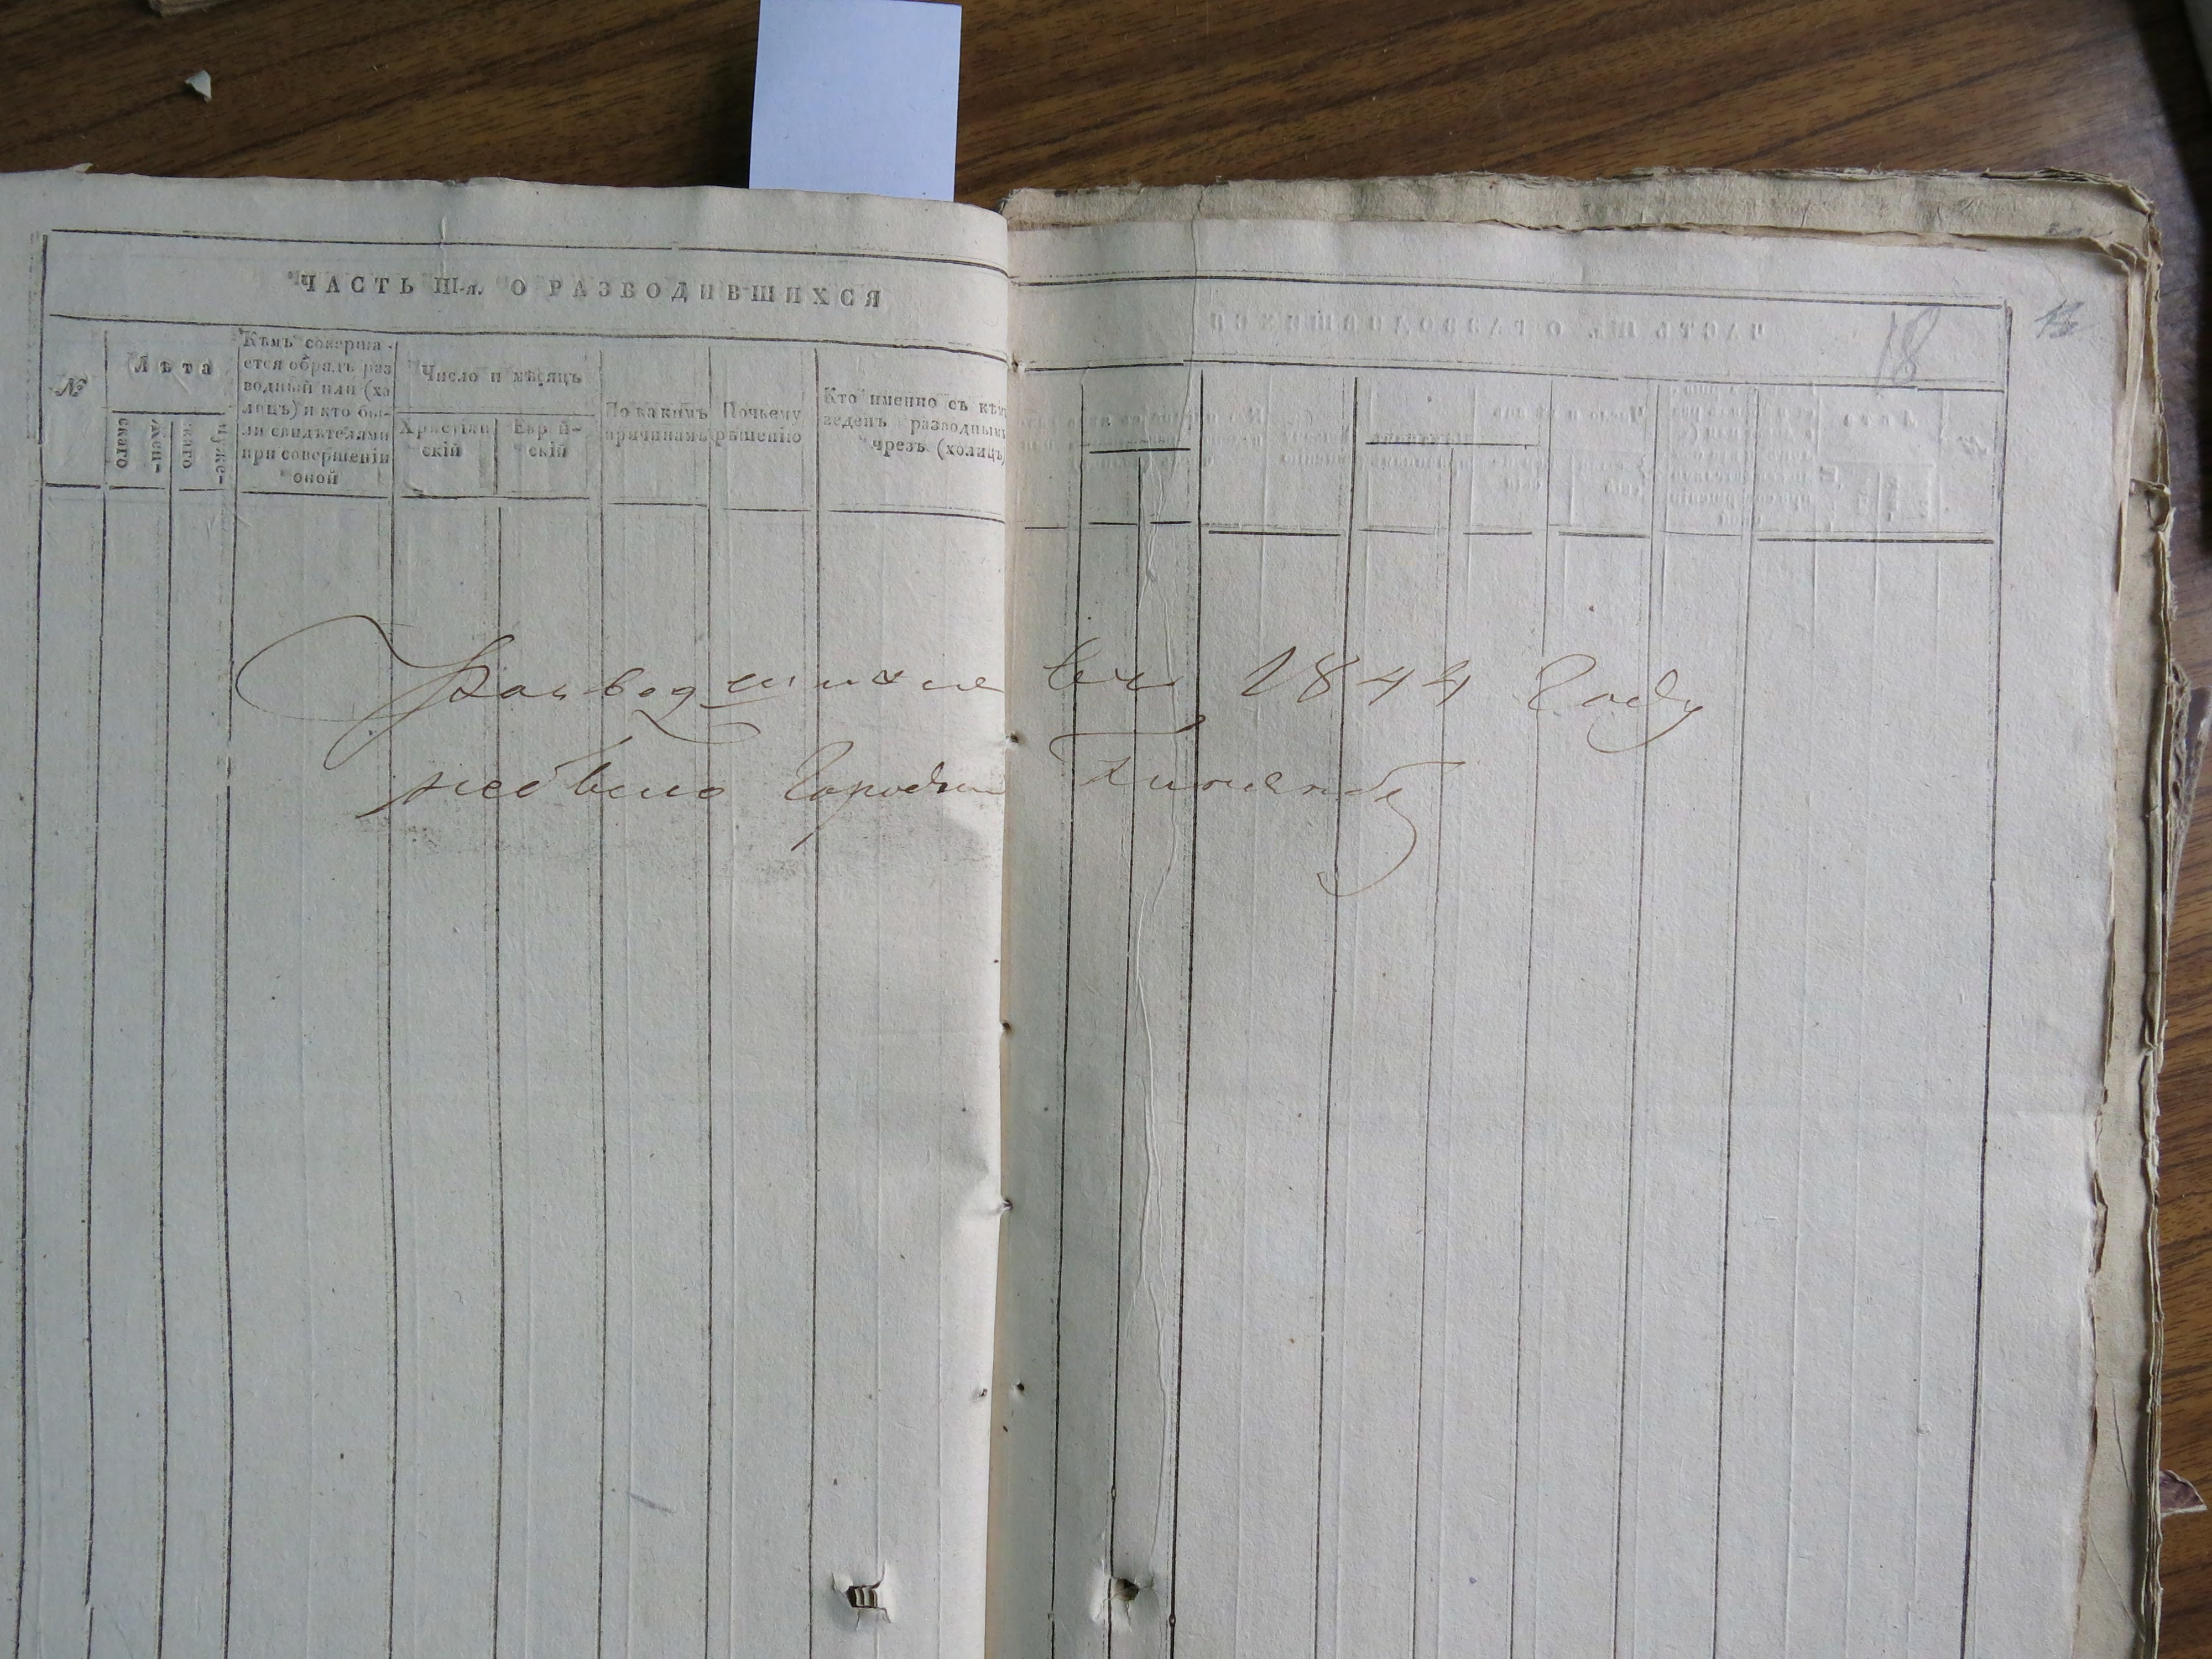 ЧАСТЬ III-я. О РАЗВОДИВШИХСЯ
18
№
Лѣта
женскаго
мужескаго
Кѣмъ соверша-
ется обрядъ раз
водный или (ха
лецъ) и кто бы-
ли свидѣтелями
при совершеніи
оной
Число и мѣсяцъ
Христіан
скій
Еврей-
скій
По какимъ
причинамъ
Почьему
рѣшенію
Кто именно съ кѣмъ
веденъ разводнымъ
чрезъ (холицъ)
Разводшихся 1844 Году
небыло